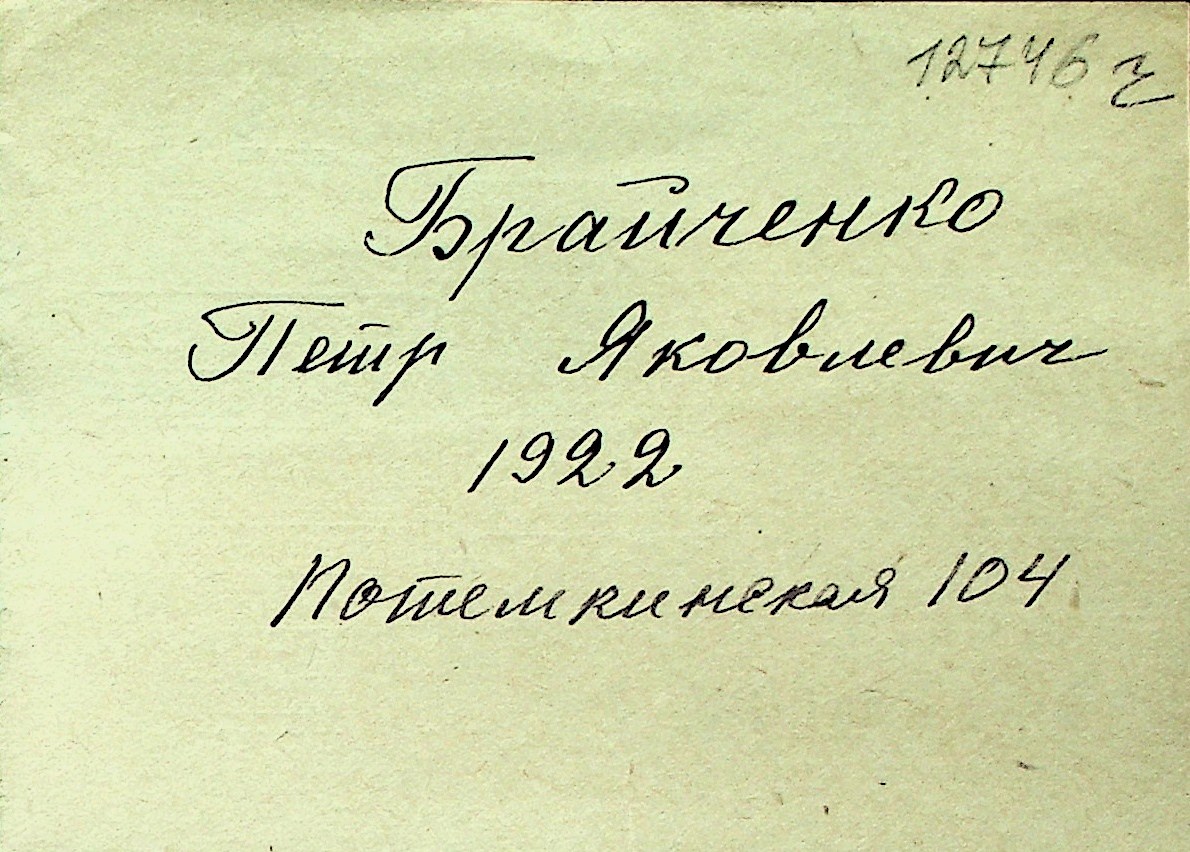 12746 г
Брайченко
Петр Яковлевич
1922
Потемкинская 104